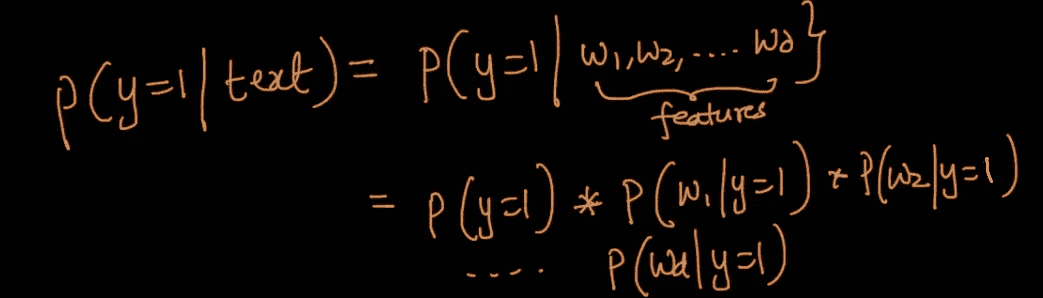 P(y=1|text) = P(y=1| w1,w2, .... wd}
features
= P(y=1) * P(w1|y=1) * P(w2|y=1)
.... P(wd|y=1)